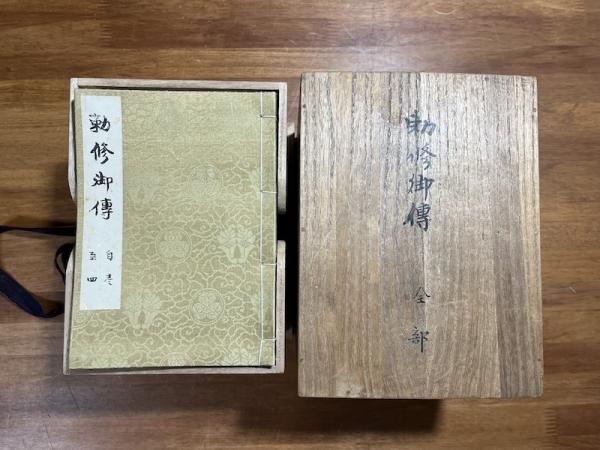 勅修御傳
自壱
至四
勅修御傳
全部